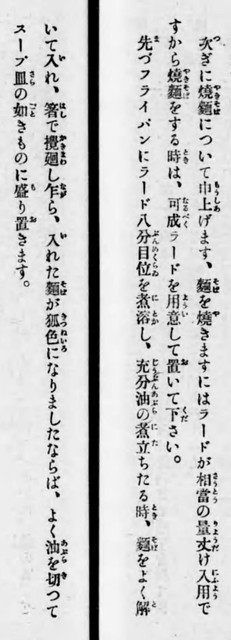 次ぎに燒麵について申上げます、麵を燒きますにはラードが相當の量丈け入用で
すから燒麵をする時は、可成ラードを用意して置いて下さい。
先づフライパンにラード八分目位を煮溶し、充分油の煮立ちたる時、麵をよく解
いて入れ、箸で攪廻し乍ら、入れた麵が狐色になりましたならば、よく油を切つて
スープ皿の如きものに盛り置きます。